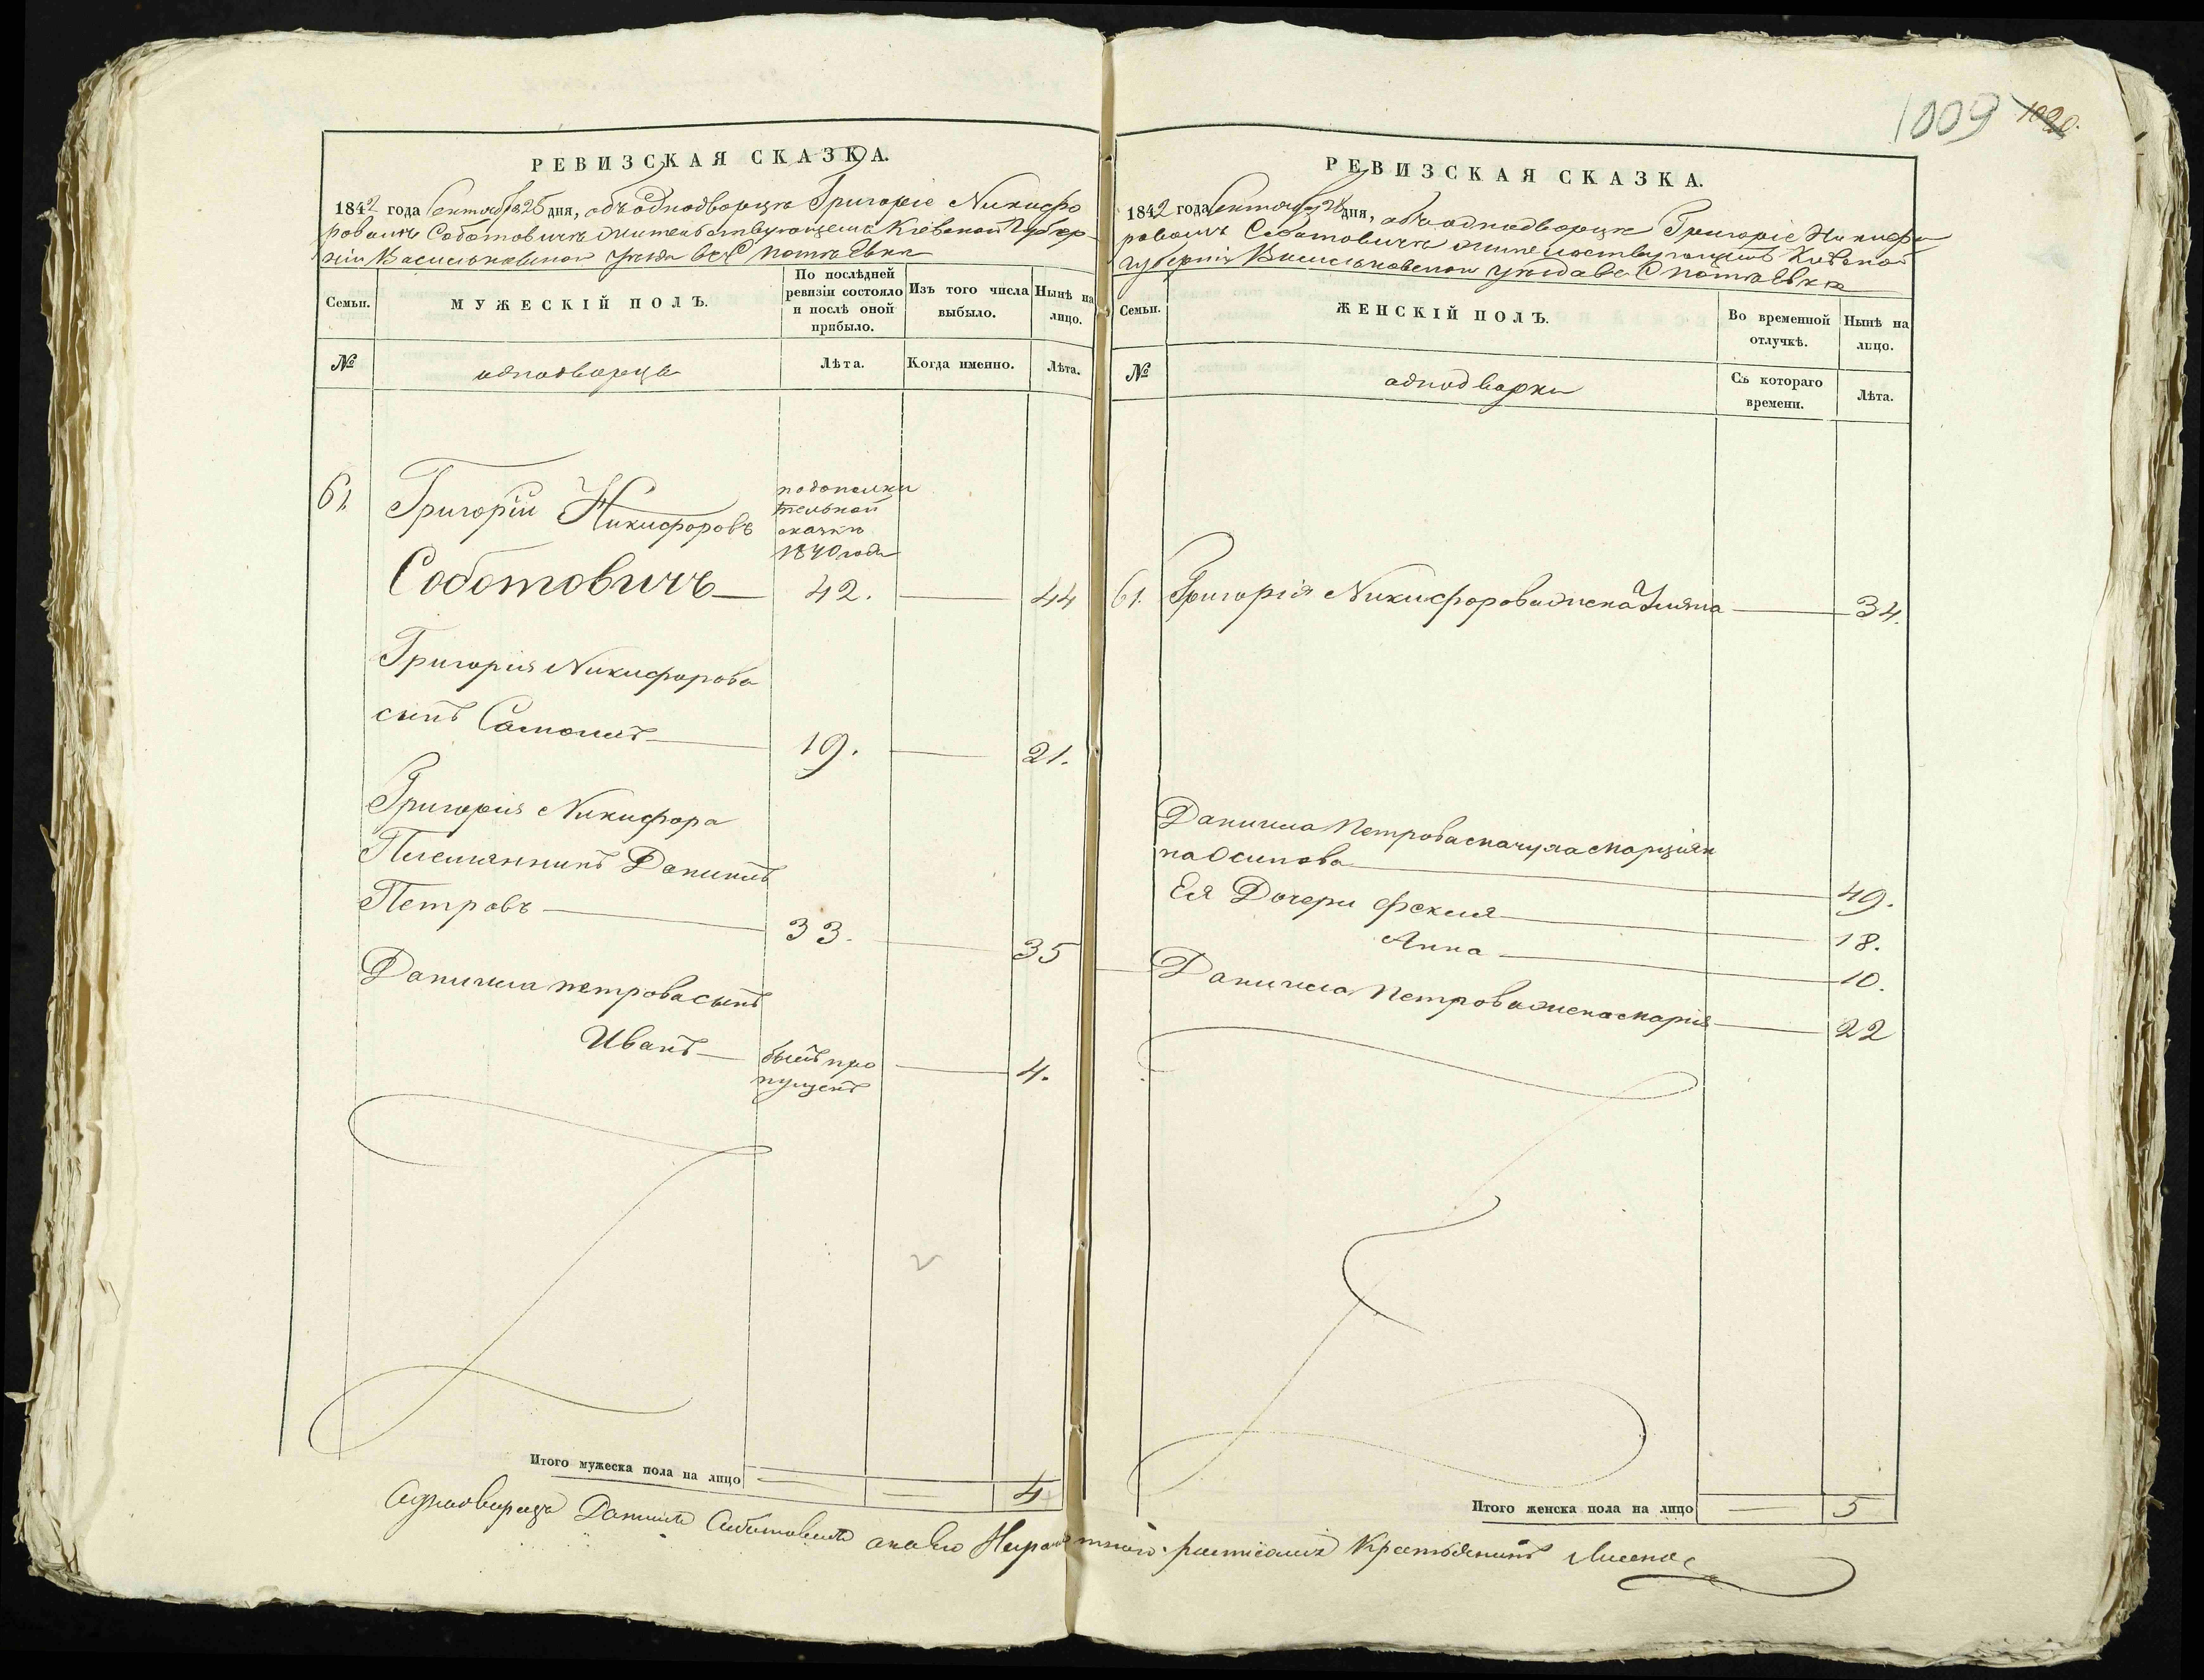 1009 1020.
РЕВИЗСКАЯ СКАЗКА.
1842 года Сентября 28 дня, объ однодворцѣ Григоріе Никифо
ровичѣ Соботовичѣ жительствующемъ Кіевской Губер
ніи Васильковскаго уѣзда в с
Семьи.
МУЖЕСКІЙ ПОЛЪ.
По послѣдней
ревизіи состояло
и послѣ оной
прибыло.
Изъ того числа
выбыло.
Нынѣ на
лицо.
№
однодворцы
Лѣта.
Когда именно.
Лѣта.
61.
Григорій Никифоровъ
Соботовичъ
по дополни
тельной
сказкѣ
1840 года
42.
44
Григорія Никифорова
сынъ Самоилъ
19.
21.
Григорія Никифора
Племянникъ Данилъ
Петровъ
33.
35
Данила петрова сынъ
Иванъ
былъ про
пущенъ
4.
Итого мужеска пола на лицо
4
РЕВИЗСКАЯ СКАЗКА.
1842 года Сентября 28 дня, объ однодворцѣ Григоріе Никифо
ровичѣ Соботовичѣ жительствующемъ Кіевской
губерніи Васильковскаго уѣзда в с
Семьи.
ЖЕНСКІЙ ПОЛЪ.
Во временной
отлучкѣ.
Нынѣ на
лицо.
№
однодворки
Съ котораго
времени.
Лѣта.
61.
Григорія Никифорова жена Уляна
34.
Данила Петрова мачуха Марціян
на Осипова
49.
Ея Дочери Фекла
18.
Анна
10.
Данила Петрова жена Марія
22
Итого женска пола на лицо
5
Однодворецъ Данило Соботовичъ а за его Неграмотнаго росписался Крестьянинъ